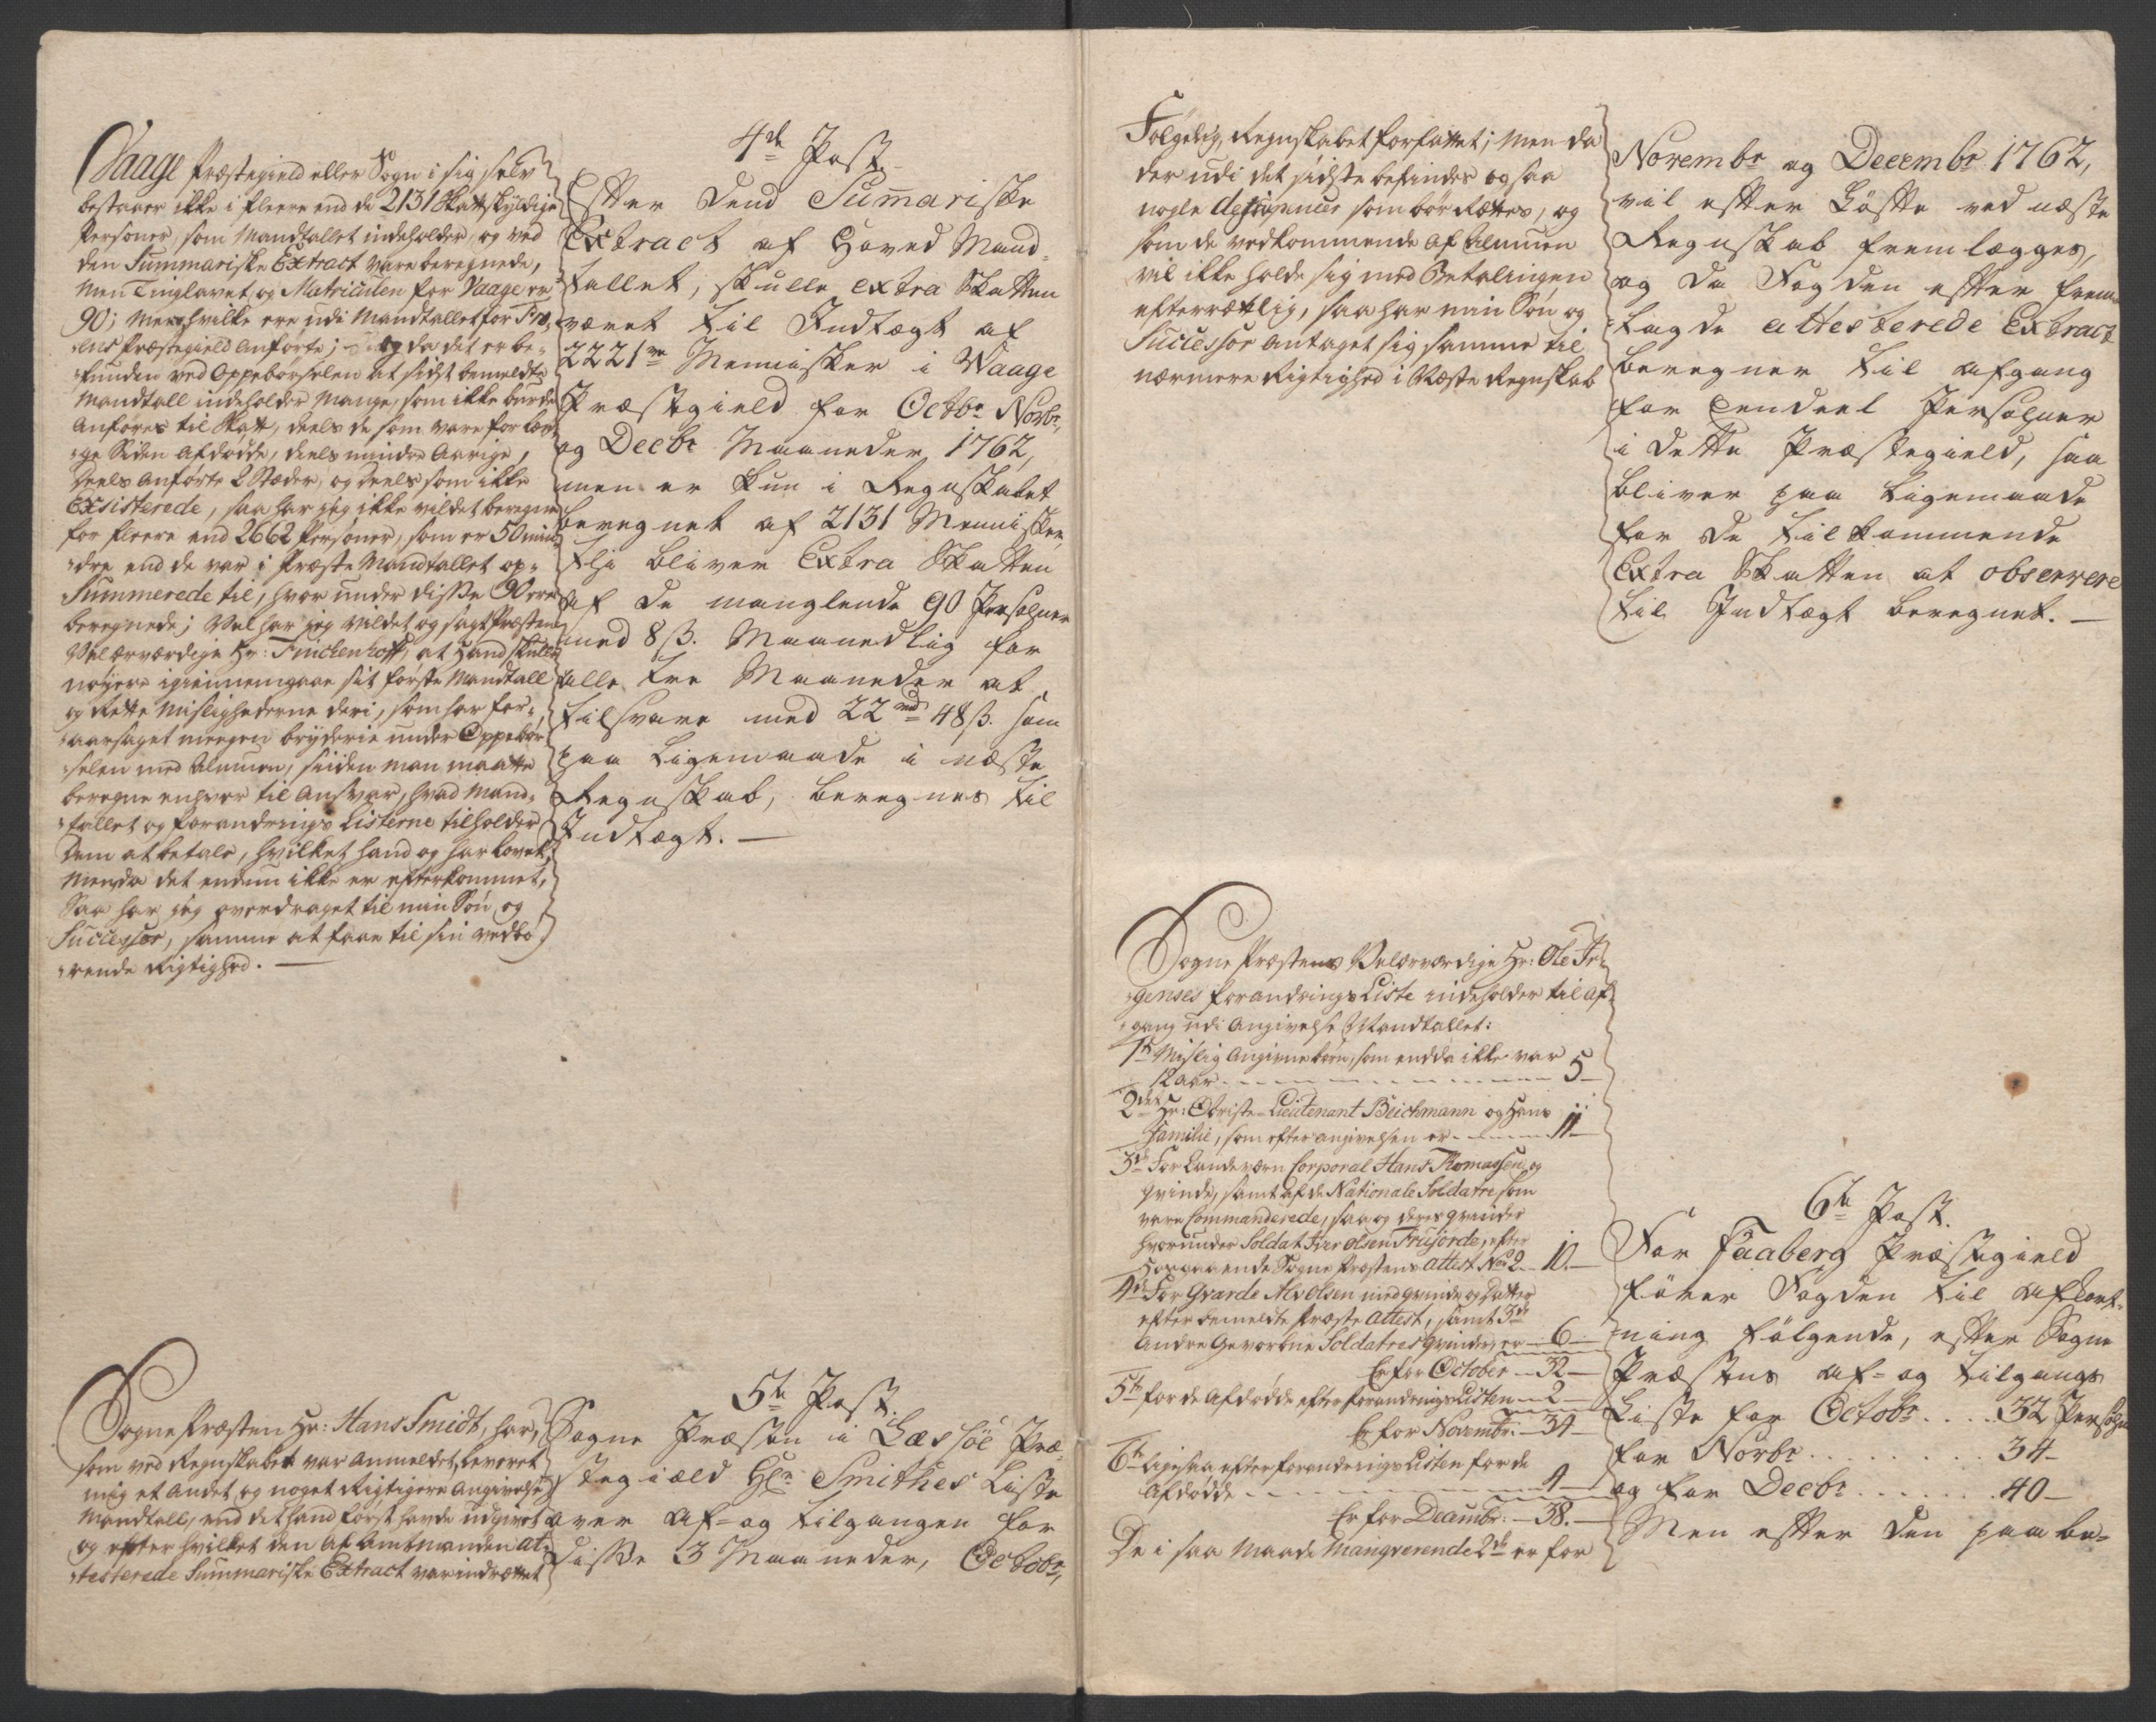 Vaage Præstegield eller Sogn i sig selv
bestaaer ikke i fleere end de 2131 Skattskyldige
Personer, som Mandtallet indeholder, og ved
den Summariske Extract vare beregnede,
Men Tinglavet og Matriculen for Vaage er
90; Mens hvilke ere udi Mandtallet for Fro-
-ens Præstegield anførte; og da det er be-
-funden ved Oppebørselen at sidst bemeldte
Mandtall indeholder Mange, som ikke burde
Anføres til Skatt, deels de som vare for læn-
-ge siden afdødde, deels mindre Aarige,
deels Anførte 2 Stæder, og deels som ikke
Exsisterede, saa har jeg ikke vildet beregne
for fleere end 2662 Personer, som er 50 min-
-dre end de var i Præste Mandtallet op-
Summerede til, hvor under disse 90 ere
beregnede; Vel har jeg vildet og sagt Præsten
Velærværdige Hr: Finckenhoff, at Hand skulle
nøyere igiennemgaae sit første Mandtall
og Rette Misligheederne deri, som har for-
-aarsaget megen bryderie under Oppebør-
-selen med Almuen, siiden man maatte
beregne enhver til Ansvar, hvad Mand-
-tallet og forandrings Listerne tilholder
dem at betale, hvilket hand og har lovet,
Men da det endnu ikke er efterkommet,
Saa har jeg overdraget til min Søn og
Successor, samme at faae til sin vedbø-
-rende Rigtighed. —
4de Post
Efter Dend Summariske
Extract af Hoved Mand-
tallet, skulle extra Skatten
været til Indtægt af
2221ve Mennisker i Waage
Præstegield for Octbr Novbr,
og Decbr Maaneder 1762,
men er kun i Regnskabet
beregnet af 2131 Mennisker,
thi bliver Extra Skatten
af de manglende 90 Persohner
med 8 ß. Maanedlig for
alle tre Maaneder at
tilsvare med 22 rd 48 ß. som
paa ligemaade i næste
Regnskab, beregnes til
Indtægt. —
Sogne Præsten Hr: Hans Smidt, har,
som ved Regnskabet var Anmeldet, leveret
mig et Andet og noget Rigtigere Angivelse
Mandtall, end det hand først havde udgivet
og efter hvilket den af Amtmanden at-
-testerede Summariske Extract var indrættet
5te Post.
Sogne Præsten i Læssöe Præ-
stegiæld Hr. Smithes Liste
over af- og tilgangen for
disse 3 Maaneder, Octobr,
Følgelig, Regnskabet forfattet; Men da
der udi det sidste befindes og saa
nogle som bør Rættes, og
som de vedkommende af Almuen
vil ikke holde sig med Betalingen
efterrættlig, saa har min Søn og
Successor antaget sig samme til
nærmere Rigtighed i Næste Regnskab
Novembr og Decembr 1762,
vil efter Löfte ved næste
Regnskab fremlægges,
og da Fogden efter frem-
lagde attesterede Extract
beregner til afgang
for Eendeel Persohner
i dette Præstegield, saa
bliver paa ligemaade
for de tilkommende
Extra Skatten at observere
til Indtægt beregnet. —
Sogne Præstens Velærværdige Hr: Ole Ir-
-genses forandrings Liste indeholder til af-
-gang udi Angivelse Mandtallet:
1te Mislig Angivne børn, som endda ikke var
12 aar — 5 —
2det Hr: Obriste-Lieutenant Beichmann og Hans
Familie, som efter angivelsen er — 11 —
3de For Landeværn Corporal Hans Thomassen og
Qvinde, samt af de Nationale Soldatre som
vare Commanderede, saa og deres qvinder
hvorunder Soldat Iver Olsen, efter
Sogne Præstens Attest No 2 — 10. —
4de For Gvarde Olsen med qvinde og datter
efter bemeldte Præste Attest, samt 3de
Andre Gevorbne Soldatres qvinder, er — 6 —
Er for October — 32 —
5te for de Afdødde efter forandrings Listen — 2 —
Er for Novembr: — 34 —
6te Ligesaa efter forandrings Listen for de
Afdødde — 4 —
Er for Decembr: — 38. —
De i saa Maade Mangverende 2de er for
6te Post.
For Faaberg Præstegield
förer Fogden til afkort-
ning fölgende, efter Sogne
Præstens af- og tilgangs
Liste for Octobr .... 32 Persohner
for Novbr ........ 34 —
og for Decbr ...... 40 —
Men efter den paa be-